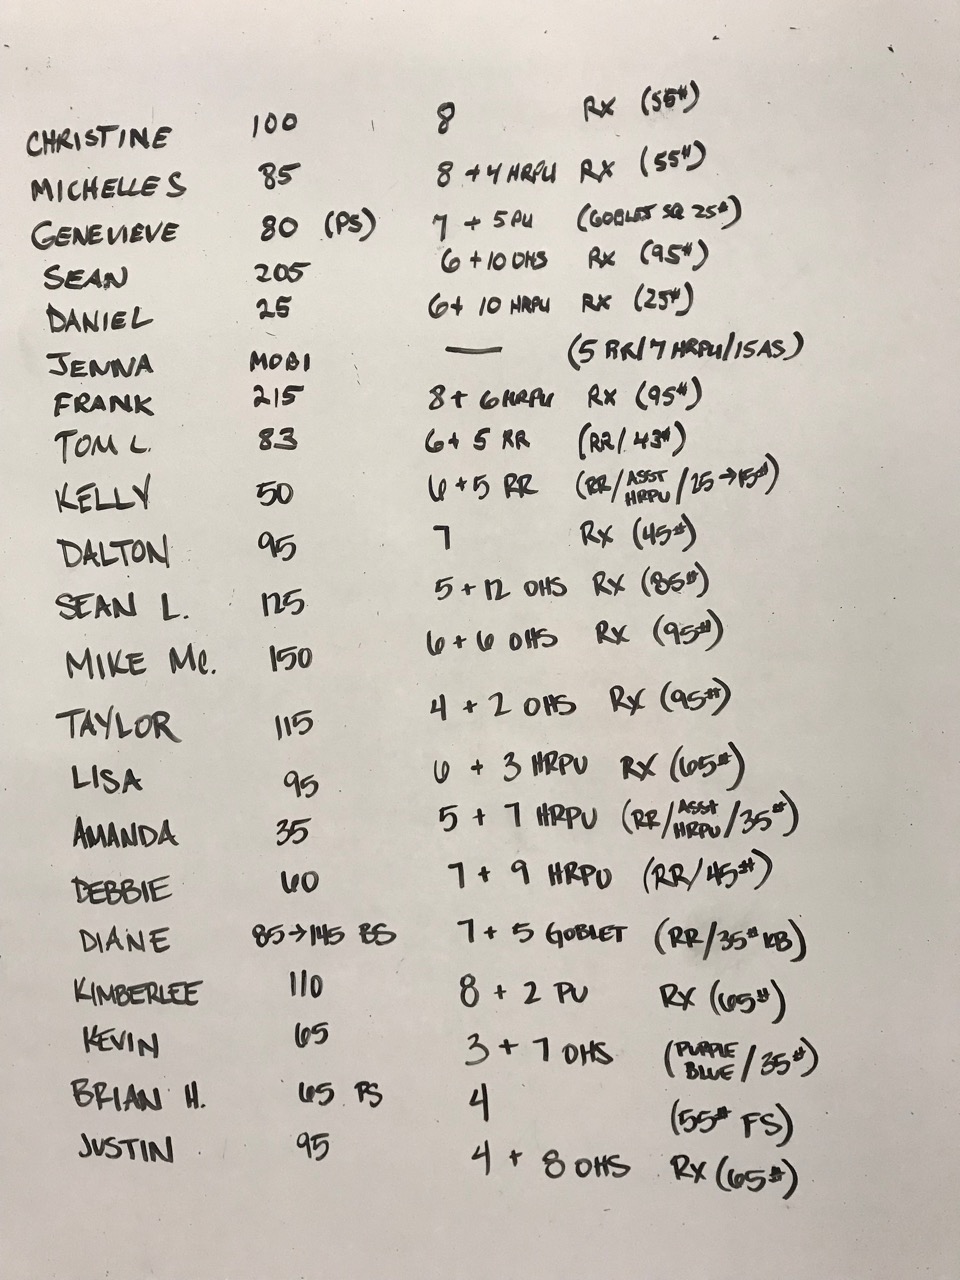 CHRISTINE 100 8 RX (55#)
MICHELLE S 85 8 + 4 HRPU RX (55#)
GENEVIEVE 80 (PS) 7 + 5 PU (GOBLET SQ 25#)
SEAN 205 6 + 10 OHS RX (95#)
DANIEL 25 6 + 10 HRPU RX (25#)
JENNA MOBI — (5 RR/7 HRPU/15 AS)
FRANK 215 8 + 6 HRPU RX (95#)
TOM L. 83 6 + 5 RR (RR/43#)
KELLY 50 6 + 5 RR (RR/ASST HRPU/25→15#)
DALTON 95 7 RX (45#)
SEAN L. 125 5 + 12 OHS RX (85#)
MIKE Mc. 150 6 + 6 OHS RX (95#)
TAYLOR 115 4 + 2 OHS RX (95#)
LISA 95 6 + 3 HRPU RX (65#)
AMANDA 35 5 + 7 HRPU (RR/ASST HRPU/35#)
DEBBIE 60 7 + 9 HRPU (RR/45#)
DIANE 85→145 BS 7 + 5 GOBLET (RR/35# KB)
KIMBERLEE 110 8 + 2 PU RX (65#)
KEVIN 65 3 + 7 OHS (PURPLE BLUE/35#)
BRIAN H. 65 PS 4 (55# FS)
JUSTIN 95 4 + 8 OHS RX (65#)